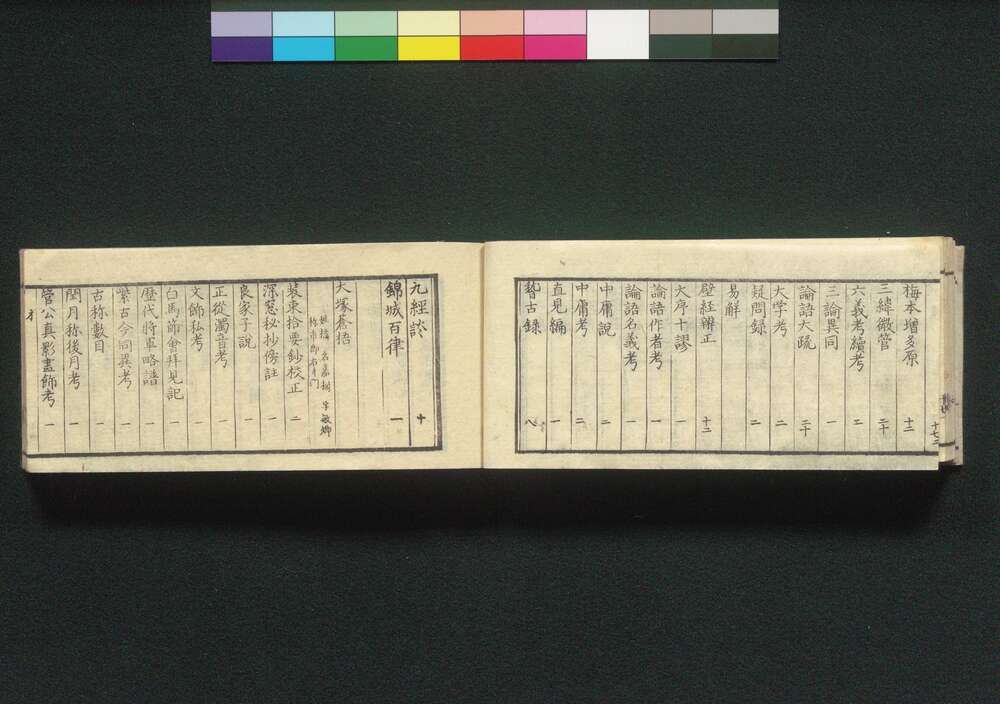 梅本増多原 十二
三緯微管 二十
六義考續考 二
三論異同 一
論語大疏 二十
大学考 二
疑問録 二
易解
壁経辨正 十二
大序十謬 一
論語作者考 一
論語名義考 一
中庸考 二
中庸説 二
直見編 一
稽古録 八
九經談 十
錦城百律 一
大塚蒼梧
名嘉樹 字敏卿
称市郎右衛门
装束拾要鈔校正 二
深窓秘抄傍註 一
良家子説 一
正從濁音考 一
文飾私考 一
白馬節會拜見記 一
歴代將軍略譜 一
紫古今同異考 一
古称數目 一
閏月称後月考 一
菅公真影畫飾考 一